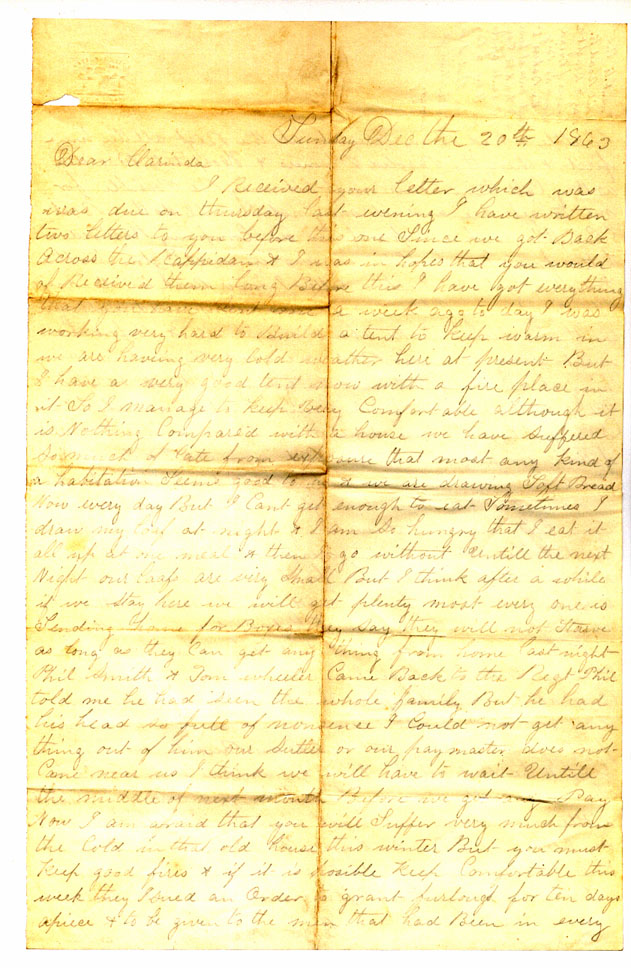 Sunday Dec the 20th 1863
Dear Clarinda
I received your letter which was
was due on thursday last evening I have written
two letters to you before this one Since we got Back
Across the Rappidan & I was in hopes that you would
of Received them long Before this I have got everything
that you have sent a week ago to day I was
working very hard to Build a tent to keep warm in
we are haveing very cold weather here at present But
I have a very good tent now with a fire place in
it So I manage to keep very Comfortable although it
is Nothing Compared with a house we have Suffered
So much of late from exposure that most any kind of
a habitation Seems good to us we are drawing Soft Bread
Now every day But I Cant get enough to eat Sometimes I
draw my loaf at night & I am So hungry that I eat it
all up at one meal & then go without Untill the next
Night our loafs are very Small But I think after a while
if we Stay here we will get plenty most every one is
Sending home for Boxes they Say they will not Starve
as long as they Can get any thing from home last night
Phil Smith & Tom wheeler Came Back to the Regt Phil
told me he had Seen the whole family But he had
his head so full of nonsence I Could not get any
thing out of him our Sutler or our paymaster does not
Come near us I think we will have to wait Untill
the middle of next month Before we get any Pay
Now I am afraid that you will Suffer very much from
the Cold in that old house this winter But you must
keep good fires & if it is posible keep Comfortable this
week they Isued an Order to grant furloughs for ten days
apiece & to be given to the men that had Been in every